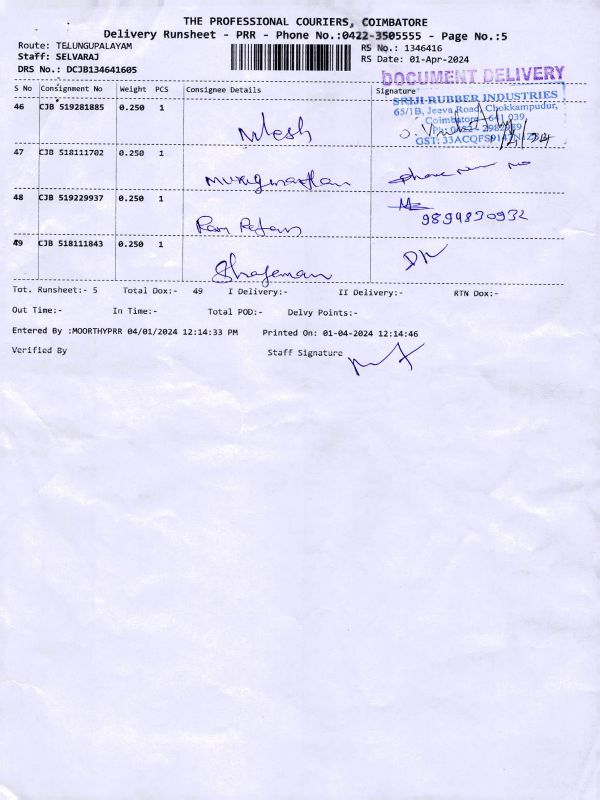 THE PROFESSIONAL COURIERS, COIMBATORE
Delivery Runsheet - PRR - Phone No.:0422-3505555 - Page No.:5
Route: TELUNGUPALAYAM
Staff: SELVARAJ
DRS No.: DCJB134641605
RS No.: 1346416
RS Date: 01-Apr-2024
DOCUMENT DELIVERY
S No Consignment No Weight PCS Consignee Details Signature
46 CJB 519281885 0.250 1
Nitesh
SRIJI RUBBER INDUSTRIES
65/1B, Jeeva Road, Chokkampudur,
Coimbatore - 641 039.
47 CJB 518111702 0.250 1
phone no
48 CJB 519229937 0.250 1
Ram
9894890932
49 CJB 518111843 0.250 1
Tot. Runsheet:- 5 Total Dox:- 49 I Delivery:- II Delivery:- RTN Dox:-
Out Time:- In Time:- Total POD:- Delvy Points:-
Entered By :MOORTHYPRR 04/01/2024 12:14:33 PM Printed On: 01-04-2024 12:14:46
Verified By Staff Signature